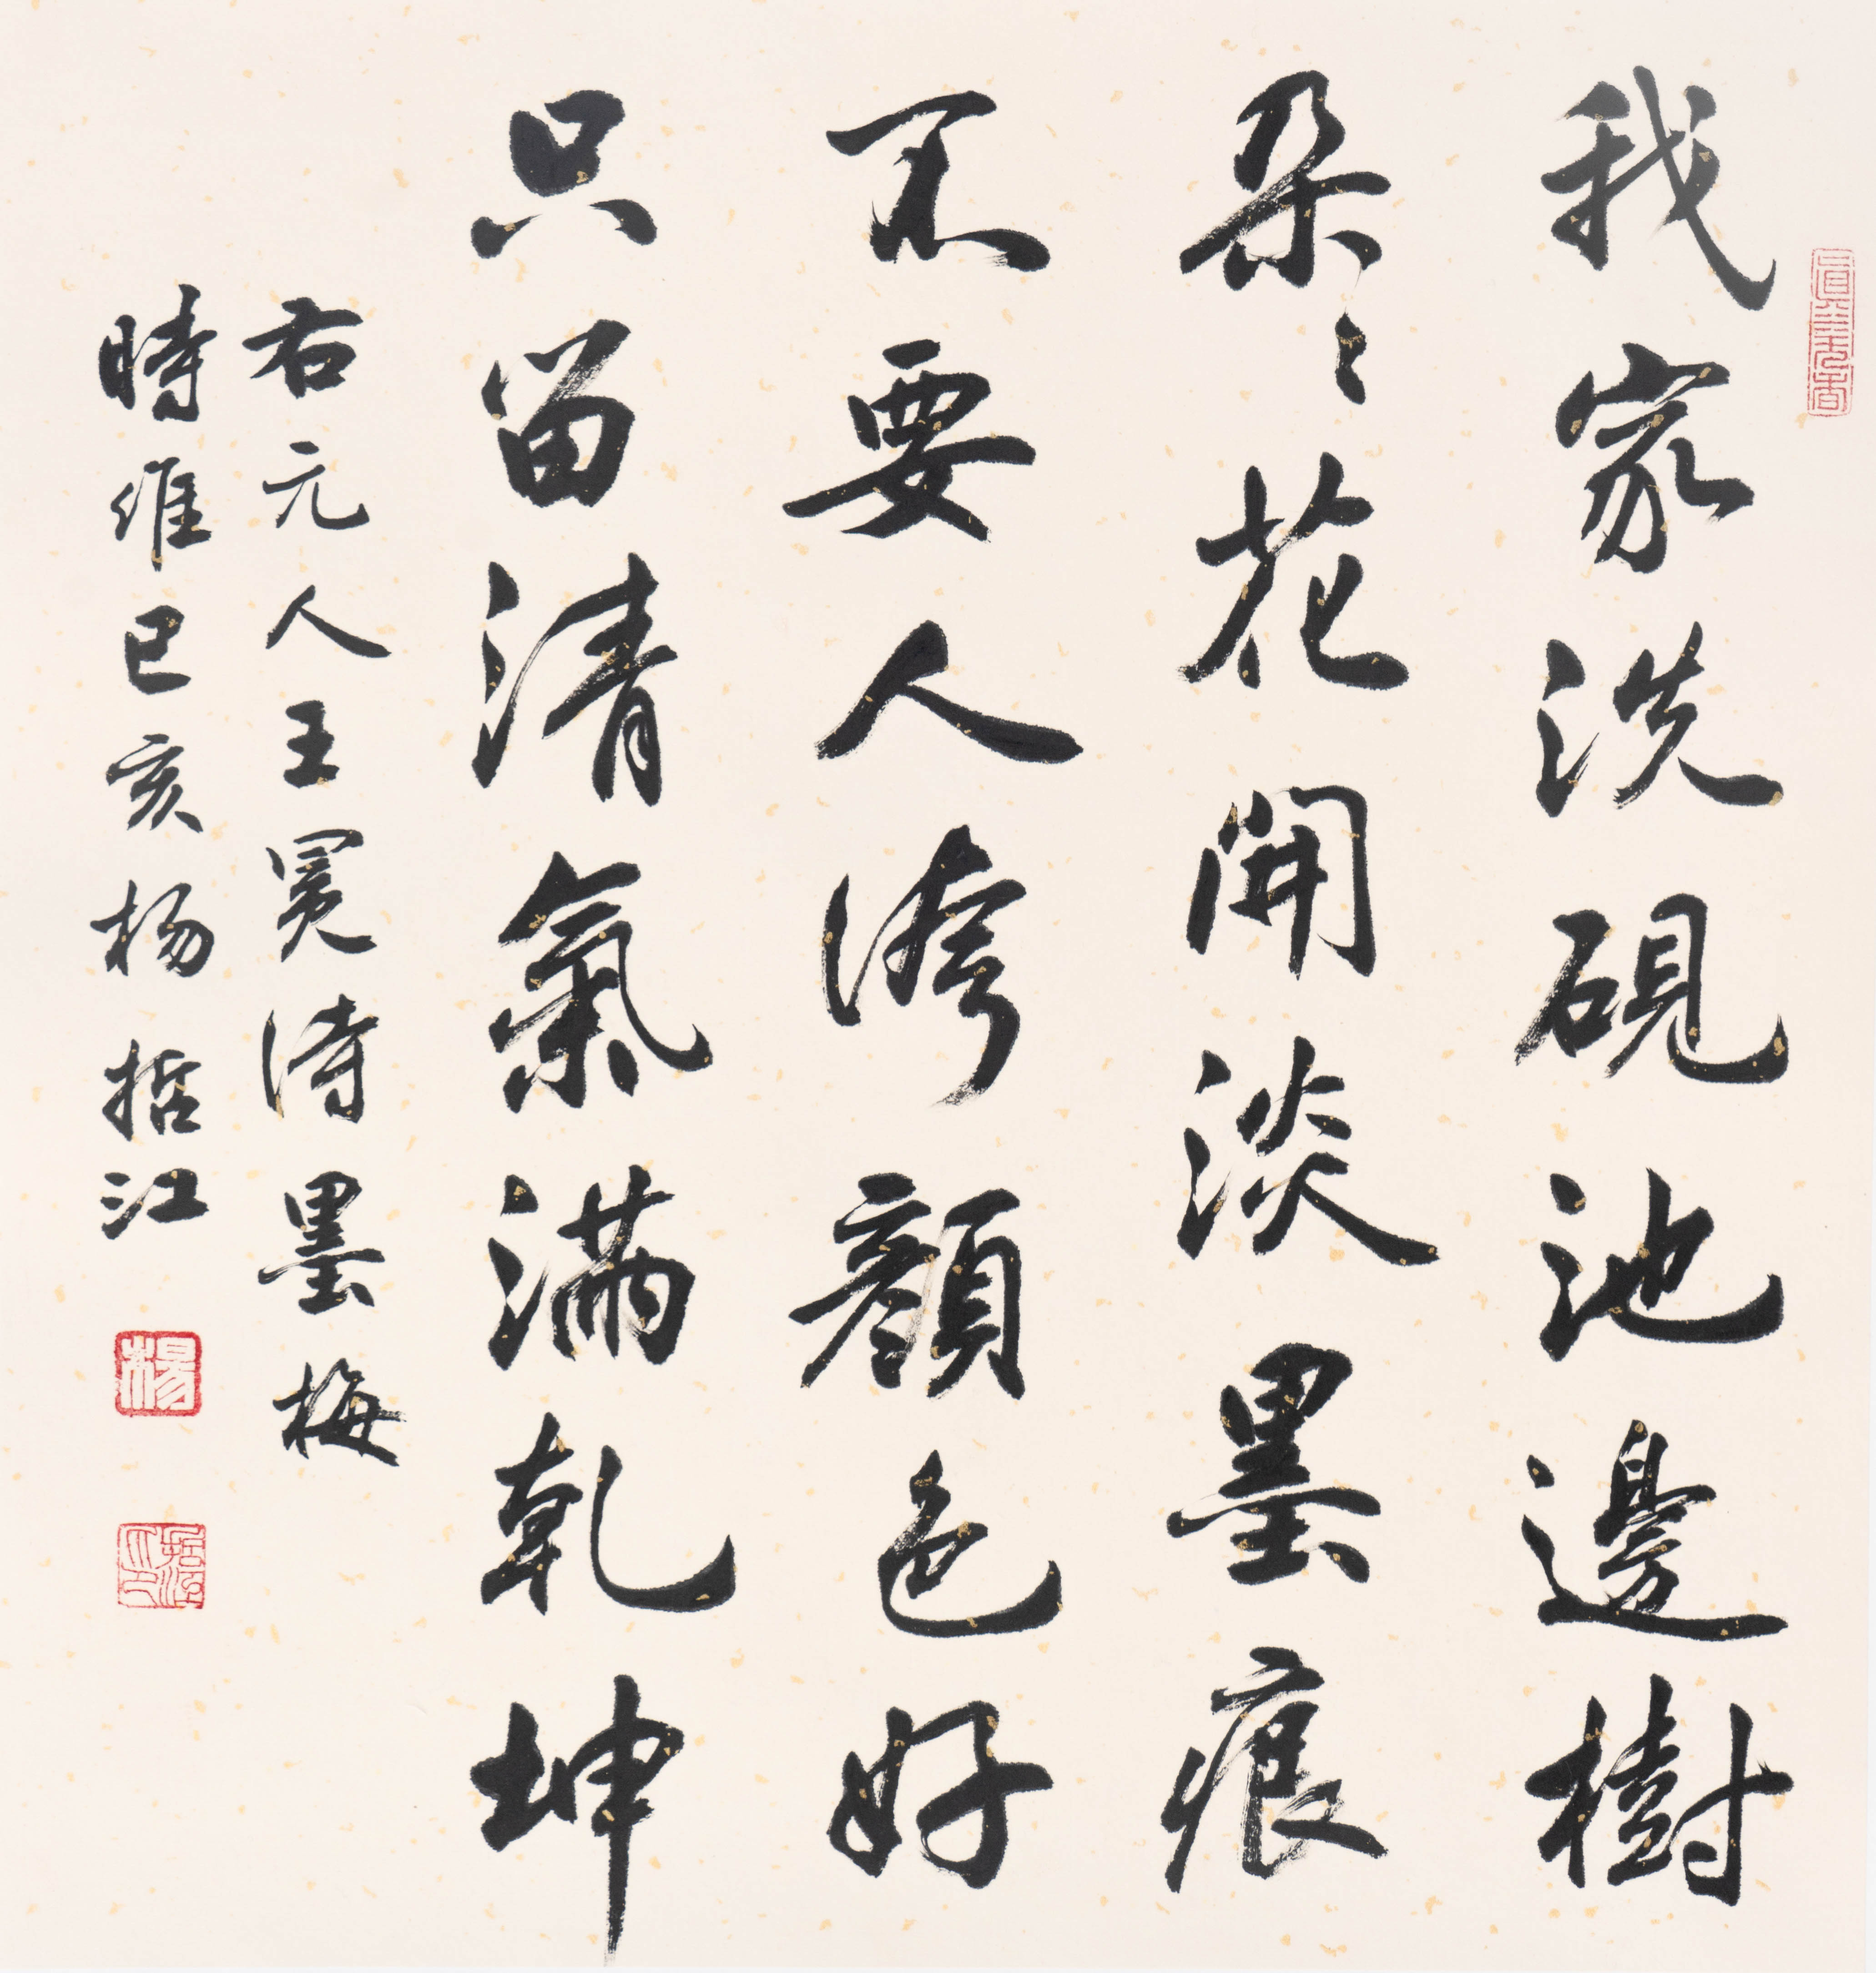 我家洗硯池邊樹
朵々花開淡墨痕
不要人誇顏色好
只留清氣滿乾坤
右元人王冕詩墨梅
時維己亥杨哲江
楊